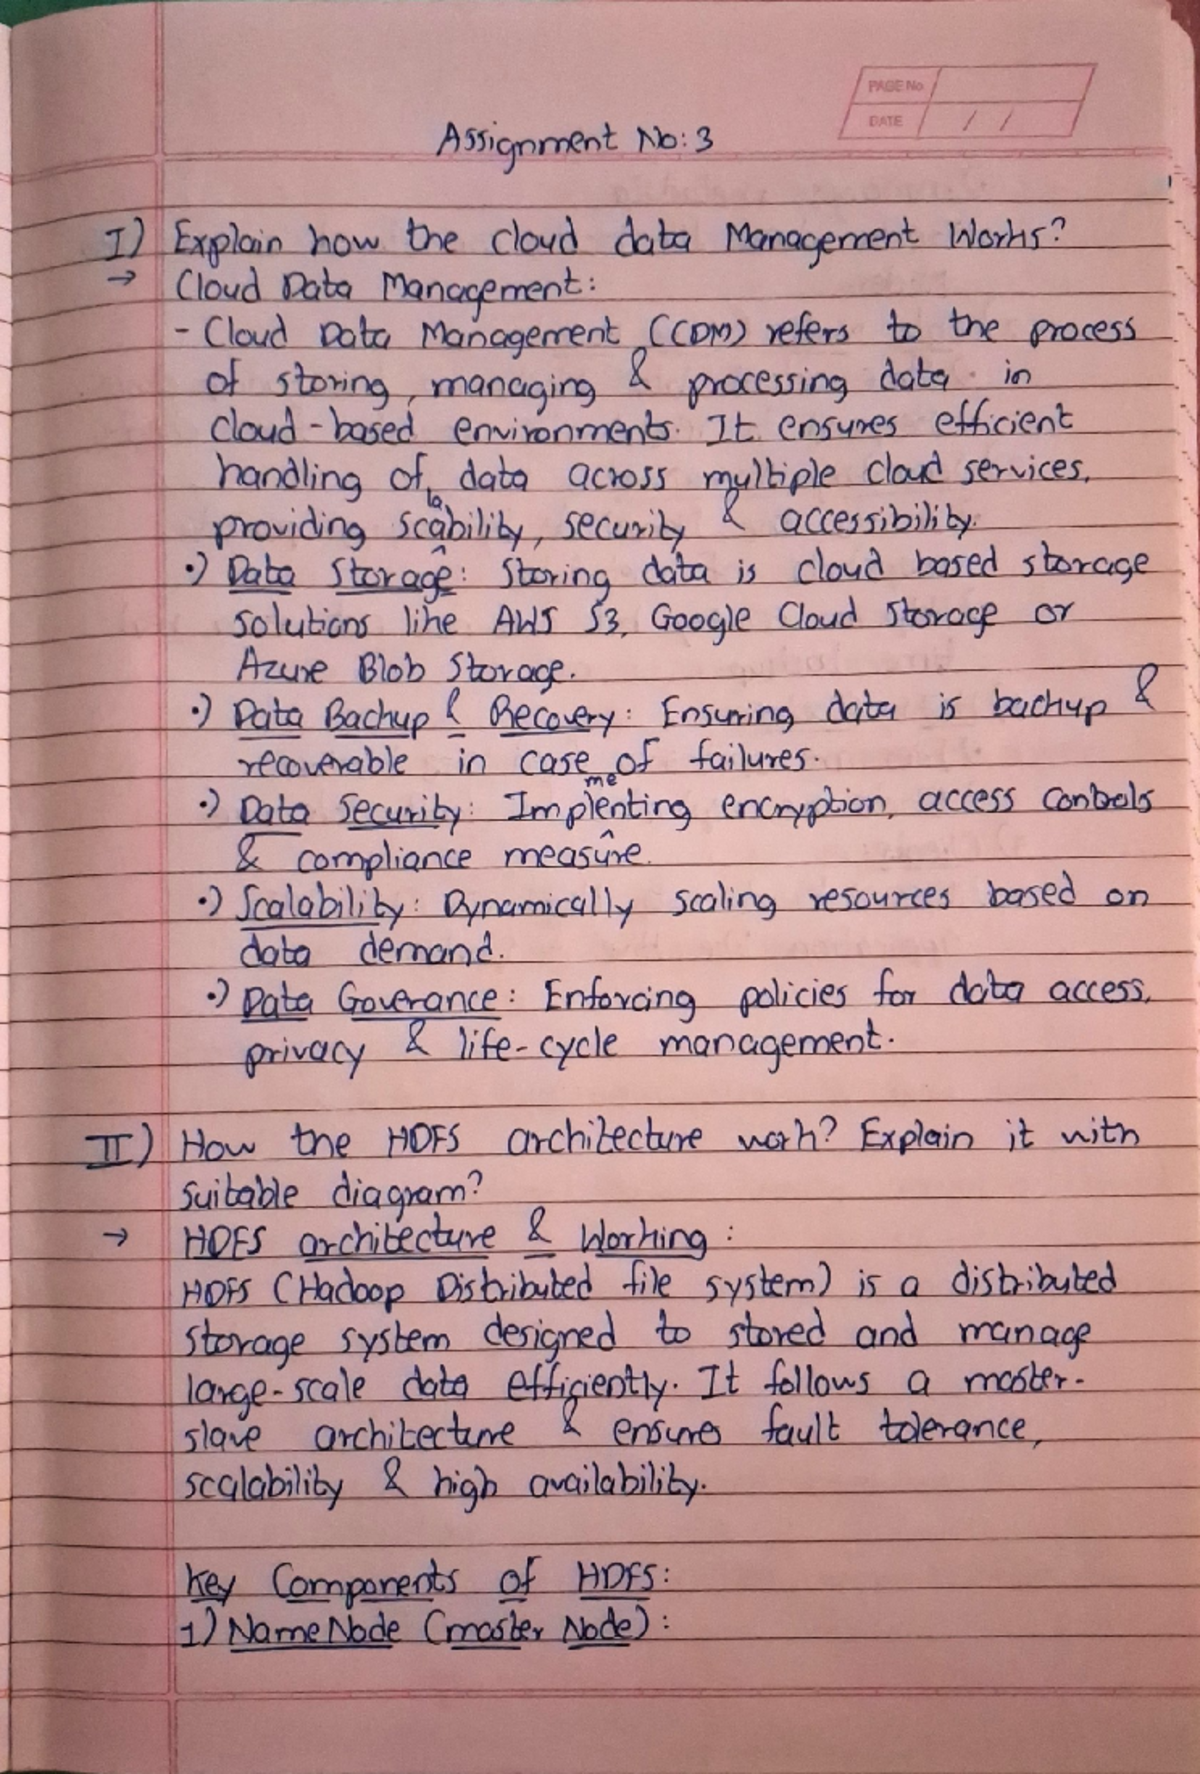 PAGE No.
DATE / /
Assignment No: 3
I) Explain how the cloud data Management Works?
→ Cloud Data Management:
- Cloud Data Management (CDM) refers to the process
of storing, managing & processing data in
cloud-based environments. It ensures efficient
handling of data across multiple cloud services,
providing scalability, security & accessibility.
•) Data Storage: Storing data is cloud based storage
solutions like AWS S3, Google Cloud Storage or
Azure Blob Storage.
•) Data Backup & Recovery: Ensuring data is backup &
recoverable in case of failures.
•) Data Security: Implementing encryption, access controls
& compliance measure.
•) Scalability: Dynamically scaling resources based on
data demand.
•) Data Goverance: Enforcing policies for data access,
privacy & life-cycle management.
II) How the HDFS architecture work? Explain it with
suitable diagram?
→ HDFS architecture & Working:
HDFS (Hadoop Distributed file system) is a distributed
storage system designed to stored and manage
large-scale data efficiently. It follows a master-
slave architecture & ensures fault tolerance,
scalability & high availability.
Key Components of HDFS:
1) NameNode (master Node):